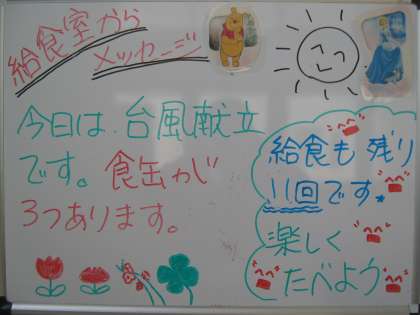 給食室から
メッセージ
今日は、台風献立
です。食缶が
3つあります。
給食も残り
11回です。
楽しく
たべよう